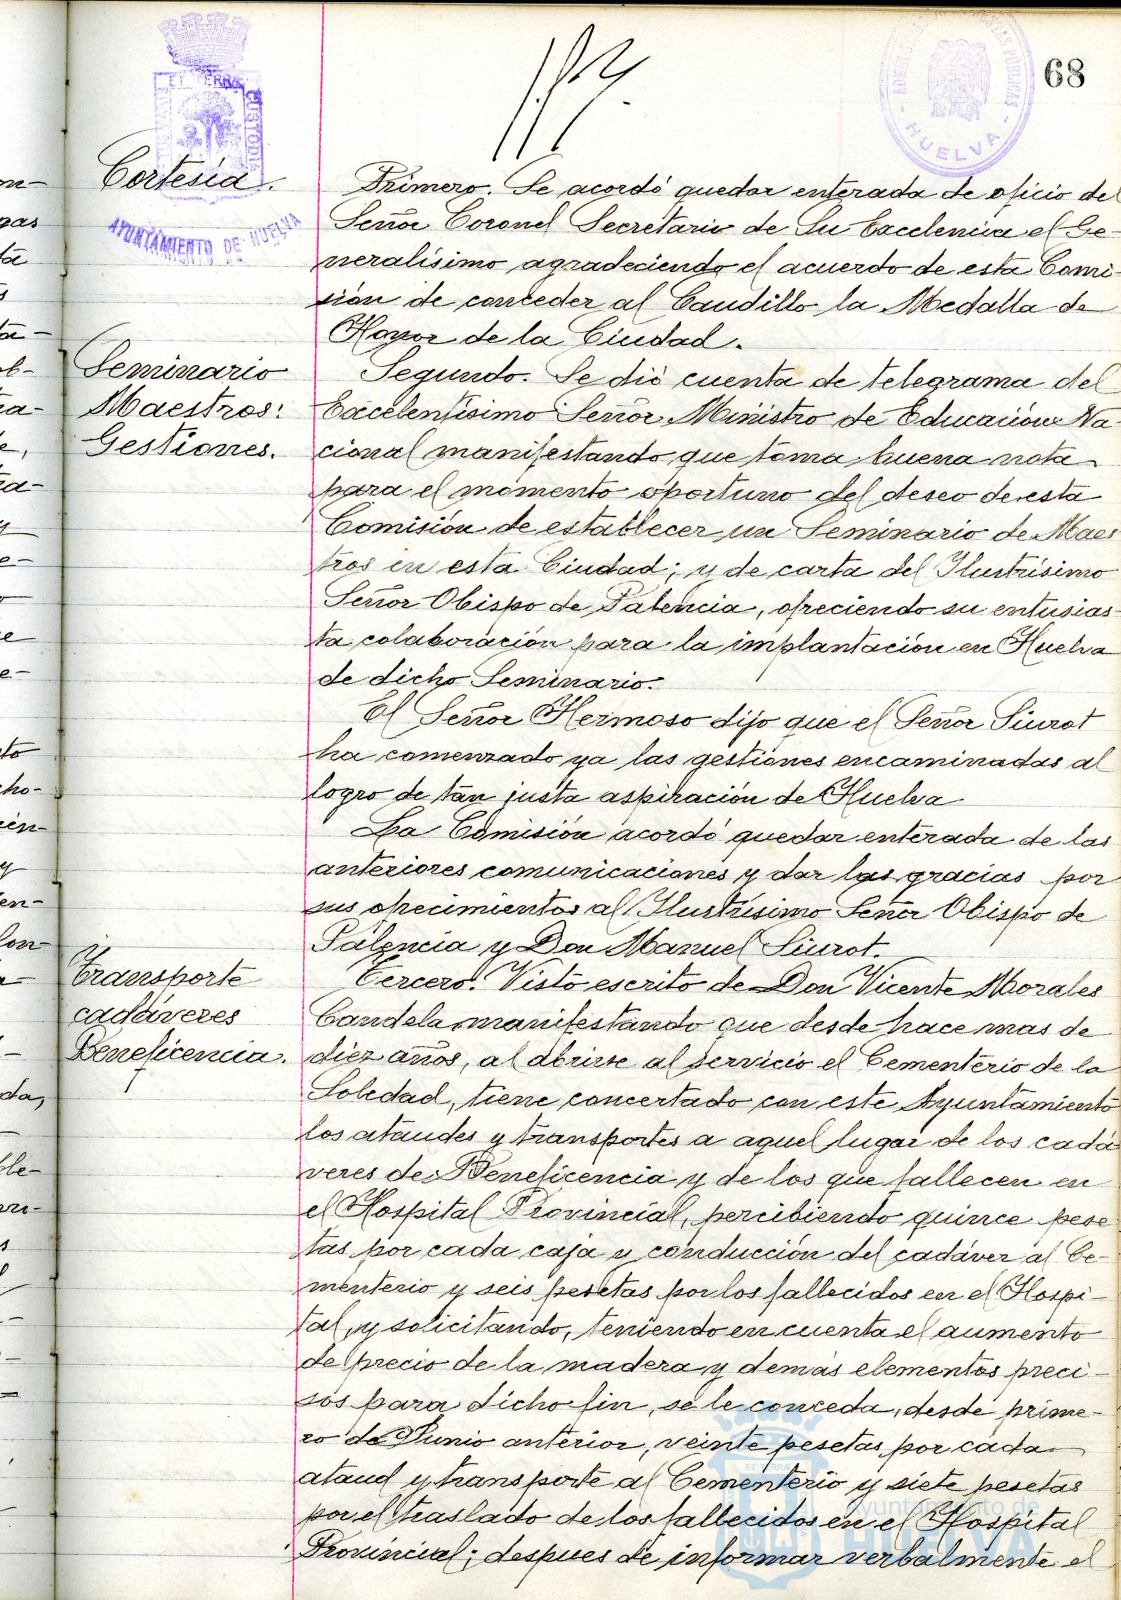 68
ET TERRA
CUSTODIA
AYUNTAMIENTO DE HUELVA
HUELVA
Cortesía.
Primero. Se acordó quedar enterada de oficio del
Señor Coronel Secretario de Su Excelencia el Ge-
neralísimo agradeciendo el acuerdo de esta Comi-
sión de conceder al Caudillo la Medalla de
Honor de la Ciudad.
Seminario
Maestros:
Gestiones.
Segundo. Se dió cuenta de telegrama del
Excelentísimo Señor Ministro de Educación Na-
cional manifestando que toma buena nota
para el momento oportuno del deseo de esta
Comisión de establecer un Seminario de Maes
tros en esta Ciudad; y de carta del Ilustrísimo
Señor Obispo de Palencia, ofreciendo su entusias-
ta colaboración para la implantación en Huelva
de dicho Seminario.
El Señor Hermoso dijo que el Señor Siurot
ha comenzado ya las gestiones encaminadas al
logro de tan justa aspiración de Huelva
La Comisión acordó quedar enterada de las
anteriores comunicaciones y dar las gracias por
sus ofrecimientos al Ilustrísimo Señor Obispo de
Palencia y Don Manuel Siurot.
Transporte
cadáveres
Beneficencia.
Tercero. Visto escrito de Don Vicente Morales
Candela manifestando que desde hace mas de
diez años, al abrirse al servicio el Cementerio de la
Soledad, tiene concertado con este Ayuntamiento
los ataudes y transportes a aquel lugar de los cadá
veres de Beneficencia y de los que fallecen en
el Hospital Provincial, percibiendo quince pese
tas por cada caja y conducción del cadáver al Ce-
menterio y seis pesetas por los fallecidos en el Hospi-
tal, y solicitando, teniendo en cuenta el aumento
de precio de la madera y demás elementos preci-
sos para dicho fin, se le conceda, desde prime-
ro de Junio anterior, veinte pesetas por cada
ataud y transporte al Cementerio y siete pesetas
por el traslado de los fallecidos en el Hospital
Provincial; despues de informar verbalmente el
Ayuntamiento de
HUELVA